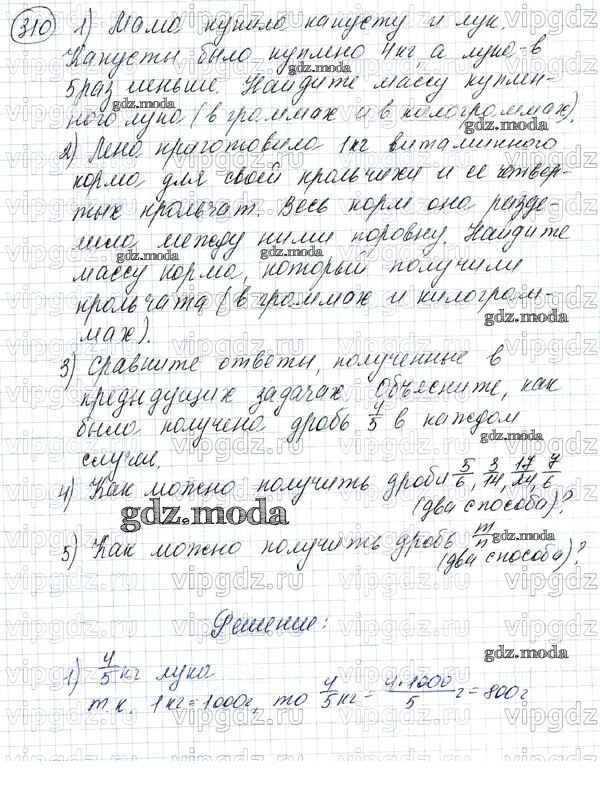 310 1) Мама купила капусту и лук.
Капусты было куплено 4 кг, а лука - в
5 раз меньше. Найдите массу куплен-
ного лука (в граммах и в килограммах).
2) Лена приготовила 1 кг витаминного
корма для своей крольчихи и её четвер-
тых крольчат. Весь корм она разде-
лила между ними поровну. Найдите
массу корма, который получили
крольчата (в граммах и килограм-
мах).
3) Сравните ответы, полученные в
предыдущих задачах. Объясните, как
была получена дробь 4/5 в каждом
случае.
4) Как можно получить дроби 5/6, 3/14, 17/24, 7/6
(два способа)?
5) Как можно получить дробь m/n
(два способа)?
Решение:
1) 4/5 кг лука
т.к. 1 кг = 1000 г, то 4/5 кг = 4·1000/5 г = 800 г
gdz.moda
vipgdz.ru